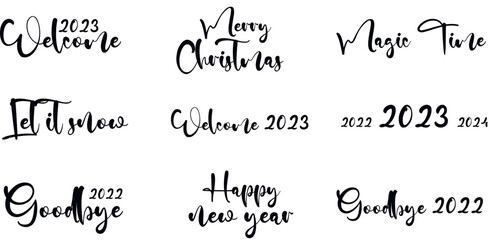 2023
Welcome
Merry
Christmas
Magic Time
Let it snow
Welcome 2023
2022 2023 2024
2022
Goodbye
Happy
new year
Goodbye 2022